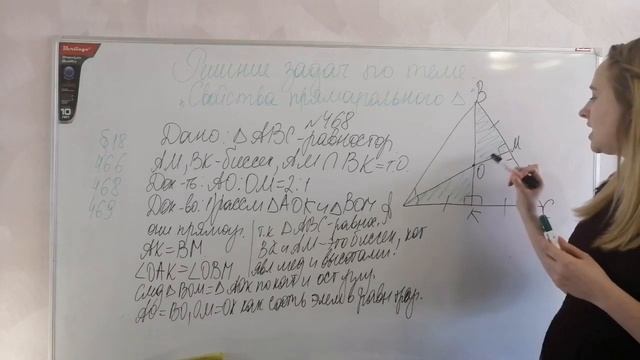 Решение задач по теме
"Свойства прямоугольного Δ"
№468
§18
466
468
469
Дано: ΔABC-равностор
AM, BK-биссек, AM∩BK=т.О.
Док-ть: AO:OM=2:1
Док-во: 1) рассм ΔAOK и ΔBOM
они прямоуг.
AK=BM
∠OAK=∠OBM
т.к ΔABC-равнос.
BK и AM-это биссек, кот
явл мед и высотами.
След ΔBOM=ΔAOK по кат и ост углу.
AO=BO, OM=OK как соотв элем в равн треуг.
B
M
O
K
A
C
Heritage
10